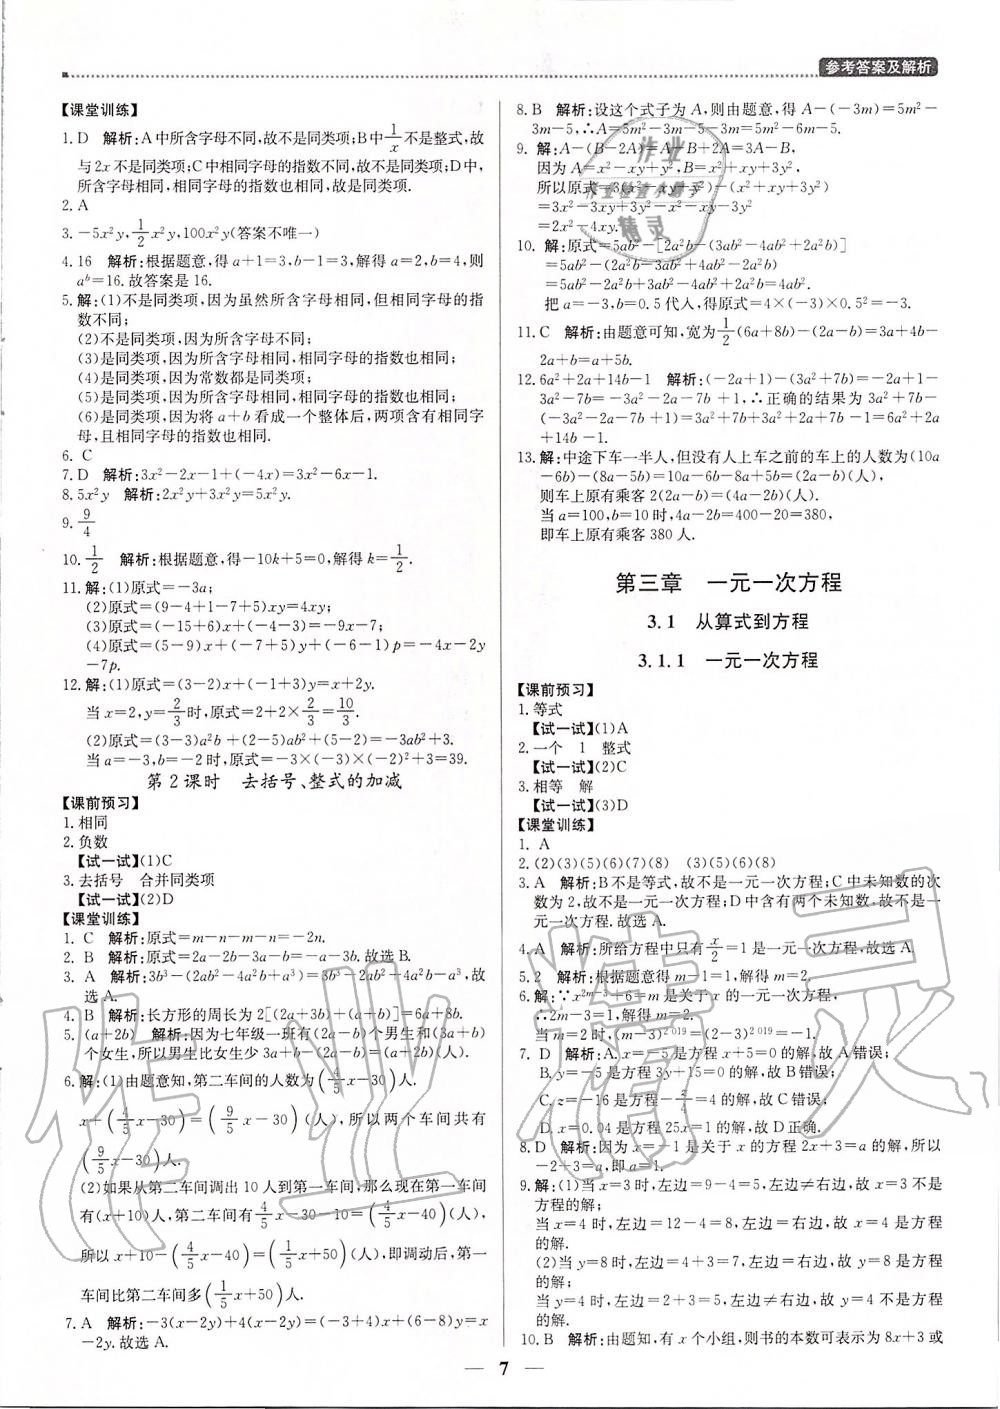 参考答案及解析
【课堂训练】
1. D　解析:A中所含字母不同,故不是同类项;B中1/x不是整式,故
与2x不是同类项;C中相同字母的指数不同,故不是同类项;D中,
所含字母相同,相同字母的指数也相同,故是同类项.
2. A
3. −5x²y,1/2x²y,100x²y(答案不唯一)
4. 16　解析:根据题意,得a+1=3,b−1=3,解得a=2,b=4,则
aᵇ=16.故答案是16.
5. 解:(1)不是同类项,因为虽然所含字母相同,但相同字母的指
数不同;
(2)不是同类项,因为所含字母不同;
(3)是同类项,因为所含字母相同,相同字母的指数也相同;
(4)是同类项,因为常数都是同类项;
(5)是同类项,因为所含字母相同,相同字母的指数也相同;
(6)是同类项,因为将a+b看成一个整体后,两项含有相同字
母,且相同字母的指数也相同.
6. C
7. D　解析:3x²−2x−1+(−4x)=3x²−6x−1.
8. 5x²y　解析:2x²y+3x²y=5x²y.
9. 9/4
10. 1/2　解析:根据题意,得−10k+5=0,解得k=1/2.
11. 解:(1)原式=−3a;
(2)原式=(9−4+1−7+5)xy=4xy;
(3)原式=(−15+6)x+(−3)=−9x−7;
(4)原式=(5−9)x+(−7+5)y+(−6−1)p=−4x−2y
−7p.
12. 解:(1)原式=(3−2)x+(−3+3+1)y=x+y.
当x=2,y=2/3时,原式=2+2×2/3=10/3.
(2)原式=(3−3)a²b+(2−5)ab²+(5−2)=−3ab²+3.
当a=−3,b=−2时,原式=−3×(−3)×(−2)²+3=39.
第2课时　去括号、整式的加减
【课前预习】
1. 相同
2. 负数
【试一试】(1)C
3. 去括号　合并同类项
【试一试】(2)D
【课堂训练】
1. C　解析:原式=m−n−m−n=−2n.
2. B　解析:原式=2a−2b−3a−b=−a−3b.故选B.
3. A　解析:3b³−(2ab²+4a²b+a³)=3b³−2ab²−4a²b−a³,故
选A.
4. B　解析:长方形的周长为2[(2a+3b)+(a+b)]=6a+8b.
5. (a+2b)　解析:因为七年级一班有(2a−b)个男生和(3a+b)
个女生,所以男生比女生少3a+b−(2a−b)=(a+2b)(人).
6. 解:(1)由题意知,第二车间的人数为(4/5x−30)人.
x+(4/5x−30)=(9/5x−30)(人),所以两个车间共有
(9/5x−30)人.
(2)如果从第二车间调出10人到第一车间,那么现在第一车间
有(x+10)人,第二车间有4/5x−30−10=(4/5x−40)(人),
所以x+10−(4/5x−40)=(1/5x+50)(人),即调动后,第一
车间比第二车间多(1/5x+50)人.
7. A　解析:−3(x−2y)+4(x−2y)=−3x+4x+(6−8)y=x
−2y.故选A.
8. B　解析:设这个式子为A,则由题意,得A−(−3m)=5m²−
3m−5,∴A=5m²−3m−5−3m=5m²−6m−5.
9. 解:A−(B−2A)=A−B+2A=3A−B,
因为A=x²−xy+y²,B=x²+xy+3y²,
所以原式=3(x²−xy+y²)−(x²+xy+3y²)
=3x²−3xy+3y²−x²−xy−3y²
=2x²−4xy.
10. 解:原式=5ab²−[2a²b−(3ab²−4ab²+2a²b)]
=5ab²−(2a²b−3ab²+4ab²−2a²b)
=5ab²−2a²b+3ab²−4ab²+2a²b=4ab².
把a=−3,b=0.5代入,得原式=4×(−3)×0.5²=−3.
11. C　解析:由题意可知,宽为1/2(6a+8b)−(2a−b)=3a+4b−
2a+b=a+5b.
12. 6a²+2a+14b−1　解析:(−2a+1)−(3a²+7b)=−2a+1−
3a²−7b=−3a²−2a−7b+1,∴正确的结果为3a²+7b−
(−3a²−2a−7b+1)=3a²+7b+3a²+2a+7b−1=6a²+2a
+14b−1.
13. 解:中途下车一半人,但没有人上车之前的车上的人数为(10a
−6b)−(8a−5b)=10a−6b−8a+5b=(2a−b)(人),
则车上原有乘客2(2a−b)=(4a−2b)(人).
当a=100,b=10时,4a−2b=400−20=380,
即车上原有乘客380人.
第三章　一元一次方程
3.1　从算式到方程
3.1.1　一元一次方程
【课前预习】
1. 等式
【试一试】(1)A
2. 一个　1　整式
【试一试】(2)C
3. 相等　解
【试一试】(3)D
【课堂训练】
1. A
2. (2)(3)(5)(6)(7)(8)　(3)(5)(6)(8)
3. A　解析:B不是等式,故不是一元一次方程;C中未知数的次
数为2,故不是一元一次方程;D中含有两个未知数,故不是一
元一次方程.故选A.
4. A　解析:所给方程中只有x/2=1是一元一次方程,故选A.
5. 2　解析:根据题意得m−1=1,解得m=2.
6. 解:∵x²ᵐ⁻³+6=m是关于x的一元一次方程,
∴2m−3=1,解得m=2.
当m=2时,(m−3)²⁰¹⁹=(2−3)²⁰¹⁹=−1.
7. D　解析:A.x=−5是方程x+5=0的解,故A错误;
B.y=−5是方程3y+15=0的解,故B错误;
C.z=−16是方程−z/4=4的解,故C错误;
D.x=0.04是方程25x=1的解,故D正确.
8. D　解析:因为x=−1是关于x的方程2x+3=a的解,所以
−2+3=a,即a=1.
9. 解:(1)当x=3时,左边=9−4=5,左边≠右边,故x=3不是
方程的解;
当x=4时,左边=12−4=8,左边=右边,故x=4是方程
的解.
(2)当y=8时,左边=4+3=7,左边=右边,故y=8是方程
的解;
当y=4时,左边=2+3=5,左边≠右边,故y=4不是方程
的解.
10. B　解析:由题知,有x个小组,则书的本数可表示为8x+3或
7
作业精灵
作业
精灵